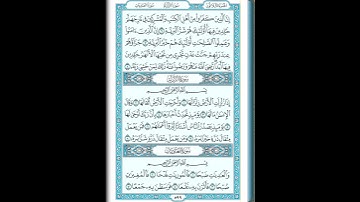 إِنَّ الَّذِينَ كَفَرُوا مِنْ أَهْلِ الْكِتَابِ وَالْمُشْرِكِينَ فِي نَارِ جَهَنَّمَ
خَالِدِينَ فِيهَا أُولَئِكَ هُمْ شَرُّ الْبَرِيَّةِ ٦ إِنَّ الَّذِينَ آمَنُوا
وَعَمِلُوا الصَّالِحَاتِ أُولَئِكَ هُمْ خَيْرُ الْبَرِيَّةِ ٧ جَزَاؤُهُمْ
عِنْدَ رَبِّهِمْ جَنَّاتُ عَدْنٍ تَجْرِي مِنْ تَحْتِهَا الْأَنْهَارُ خَالِدِينَ
فِيهَا أَبَدًا رَضِيَ اللَّهُ عَنْهُمْ وَرَضُوا عَنْهُ ذَلِكَ لِمَنْ خَشِيَ رَبَّهُ ٨
سورة الزلزلة
بِسْمِ اللَّهِ الرَّحْمَنِ الرَّحِيمِ
إِذَا زُلْزِلَتِ الْأَرْضُ زِلْزَالَهَا ١ وَأَخْرَجَتِ الْأَرْضُ أَثْقَالَهَا ٢ وَقَالَ
الْإِنْسَانُ مَا لَهَا ٣ يَوْمَئِذٍ تُحَدِّثُ أَخْبَارَهَا ٤ بِأَنَّ رَبَّكَ أَوْحَى لَهَا
٥ يَوْمَئِذٍ يَصْدُرُ النَّاسُ أَشْتَاتًا لِيُرَوْا أَعْمَالَهُمْ ٦ فَمَنْ يَعْمَلْ
مِثْقَالَ ذَرَّةٍ خَيْرًا يَرَهُ ٧ وَمَنْ يَعْمَلْ مِثْقَالَ ذَرَّةٍ شَرًّا يَرَهُ ٨
سورة العاديات
بِسْمِ اللَّهِ الرَّحْمَنِ الرَّحِيمِ
وَالْعَادِيَاتِ ضَبْحًا ١ فَالْمُورِيَاتِ قَدْحًا ٢ فَالْمُغِيرَاتِ
صُبْحًا ٣ فَأَثَرْنَ بِهِ نَقْعًا ٤ فَوَسَطْنَ بِهِ جَمْعًا ٥
٥٩٩